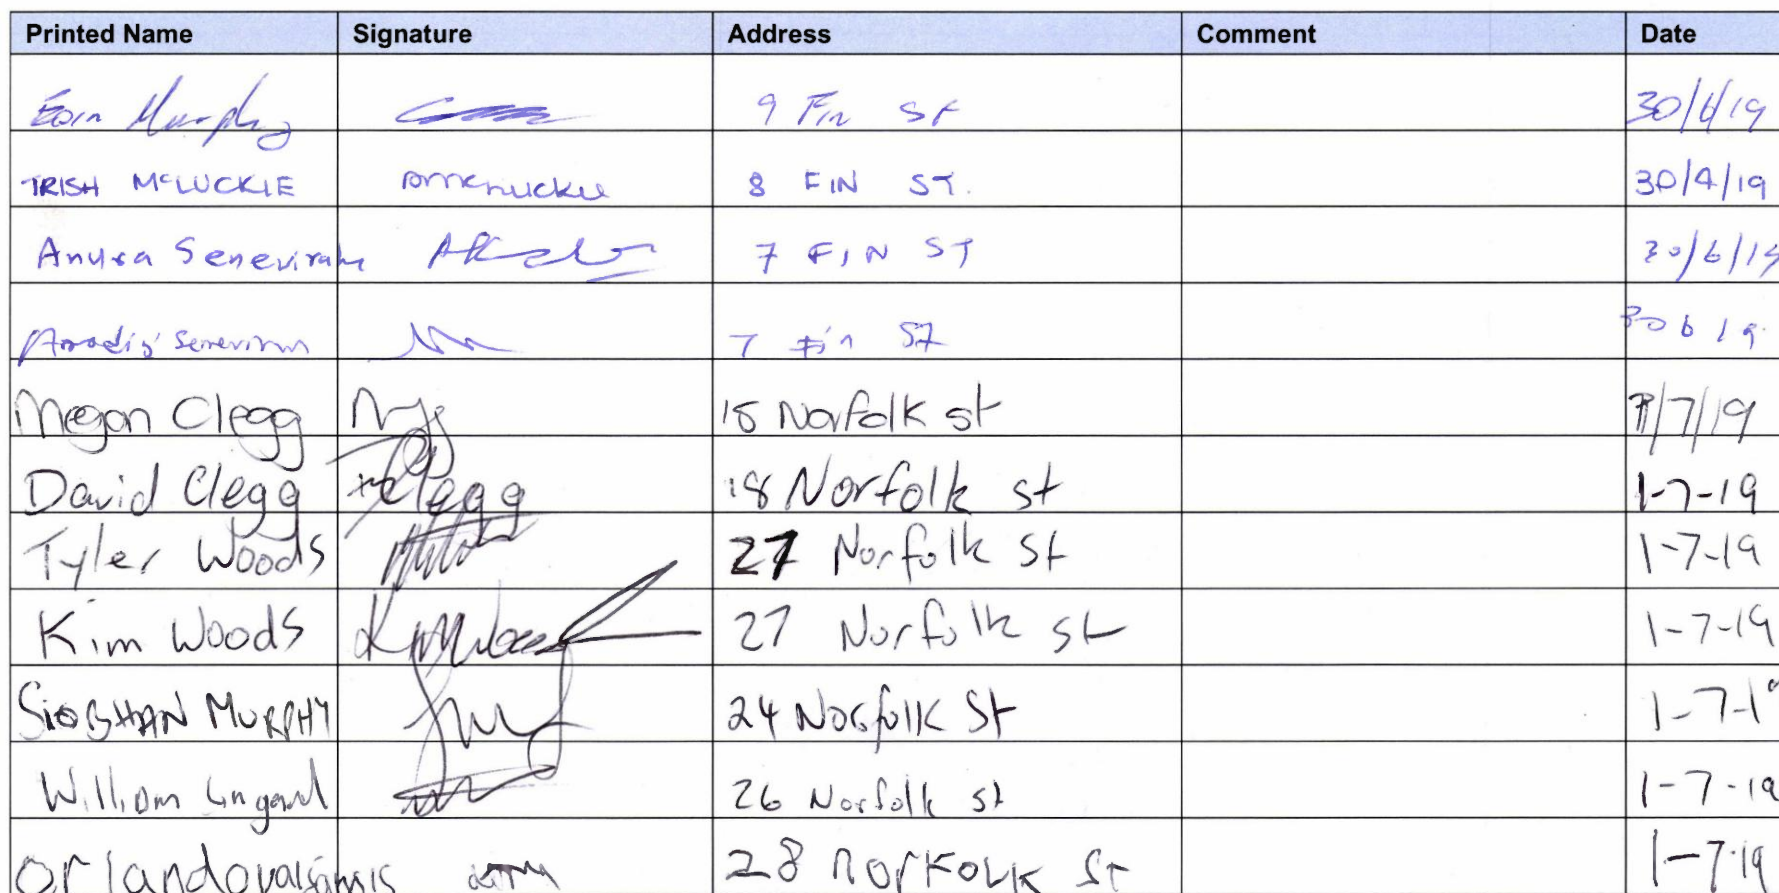 Printed Name Signature Address Comment Date
Eoin Murphy 9 Fin St 30/6/19
TRISH McLUCKIE 8 FIN ST. 30/4/19
Anura Senevirat 7 FIN ST 30/6/19
7 Fin St 30 6 19
Megan Clegg 18 Norfolk st /7/19
David Clegg Clegg 18 Norfolk st 1-7-19
Tyler Woods 27 Norfolk St 1-7-19
Kim Woods 27 Norfolk st 1-7-19
SIOBHAN MURPHY 24 Norfolk St 1-7-1
William 26 Norfolk st 1-7-19
28 NORFOLK St 1-7-19